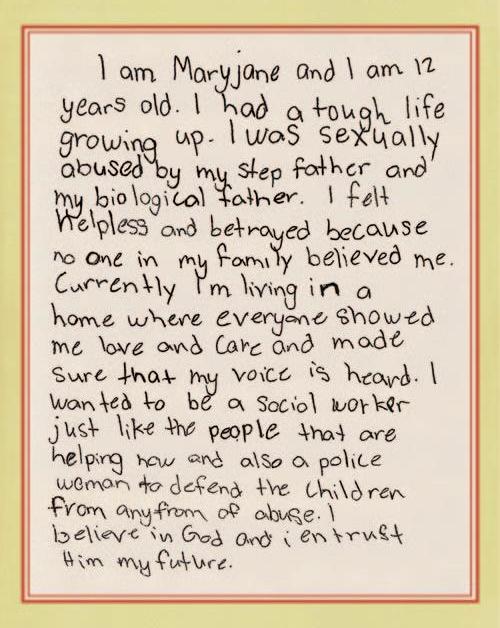 I am Maryjane and I am 12
years old. I had a tough life
growing up. I was sexually
abused by my step father and
my biological father. I felt
helpless and betrayed because
no one in my family believed me.
Currently I'm living in a
home where everyone showed
me love and care and made
sure that my voice is heard. I
wanted to be a social worker
just like the people that are
helping now and also a police
woman to defend the children
from anyfrom of abuse. I
believe in God and i entrust
Him my future.